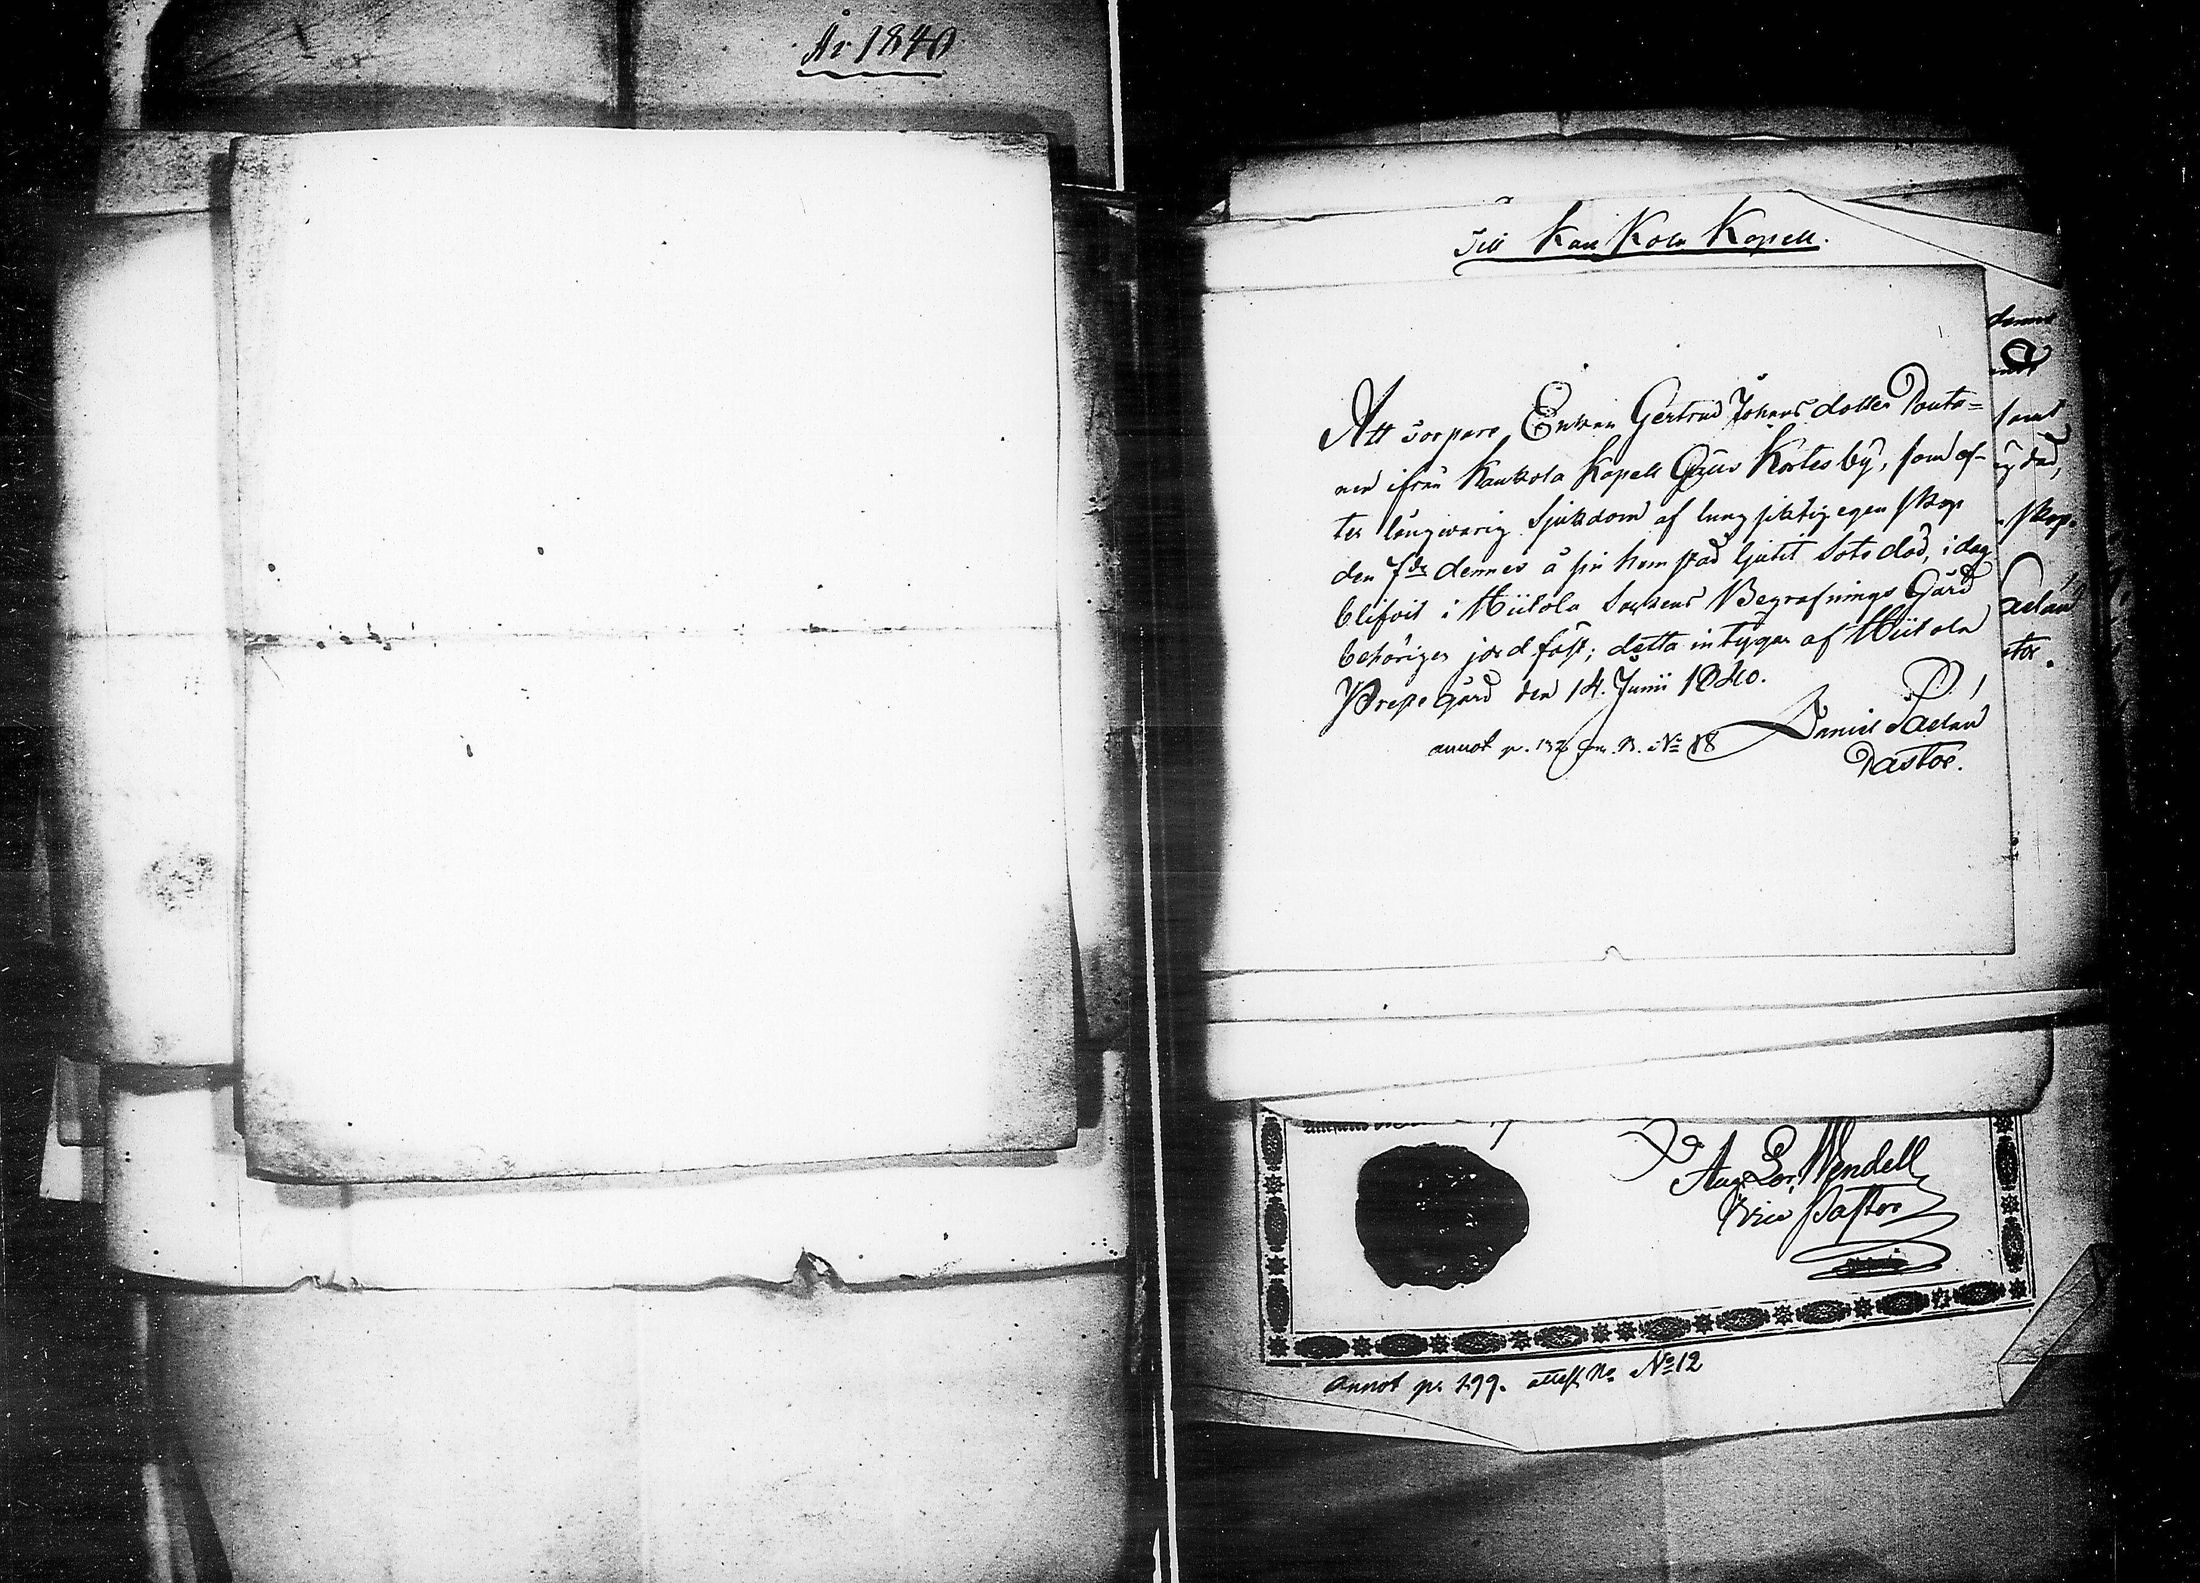 År 1840
Till Kaukola Kapell.
Att torpare Enkan Gertrud Johans dotter Pouta=
nen ifrån Kaukola Kapell Gåus Kortesby, som ef-
ter långwarig Sjukdom af lungsiktig egenskap
den 7de dennes å sin hemstad ljutit Sotedöd, i dag
blifvit i Hiitola Sockens Begrafnings Gård
behörigen jordfäst; detta intygar af Hiitola
Prestegård den 14. Junii 1840.
Daniel
Pastor.
annot p. 132 N. No 18
dennes
samt
död,
skap
stor.
Aug. Lor. Wendell
Vice Pastor
annot p. 299. attest No 12